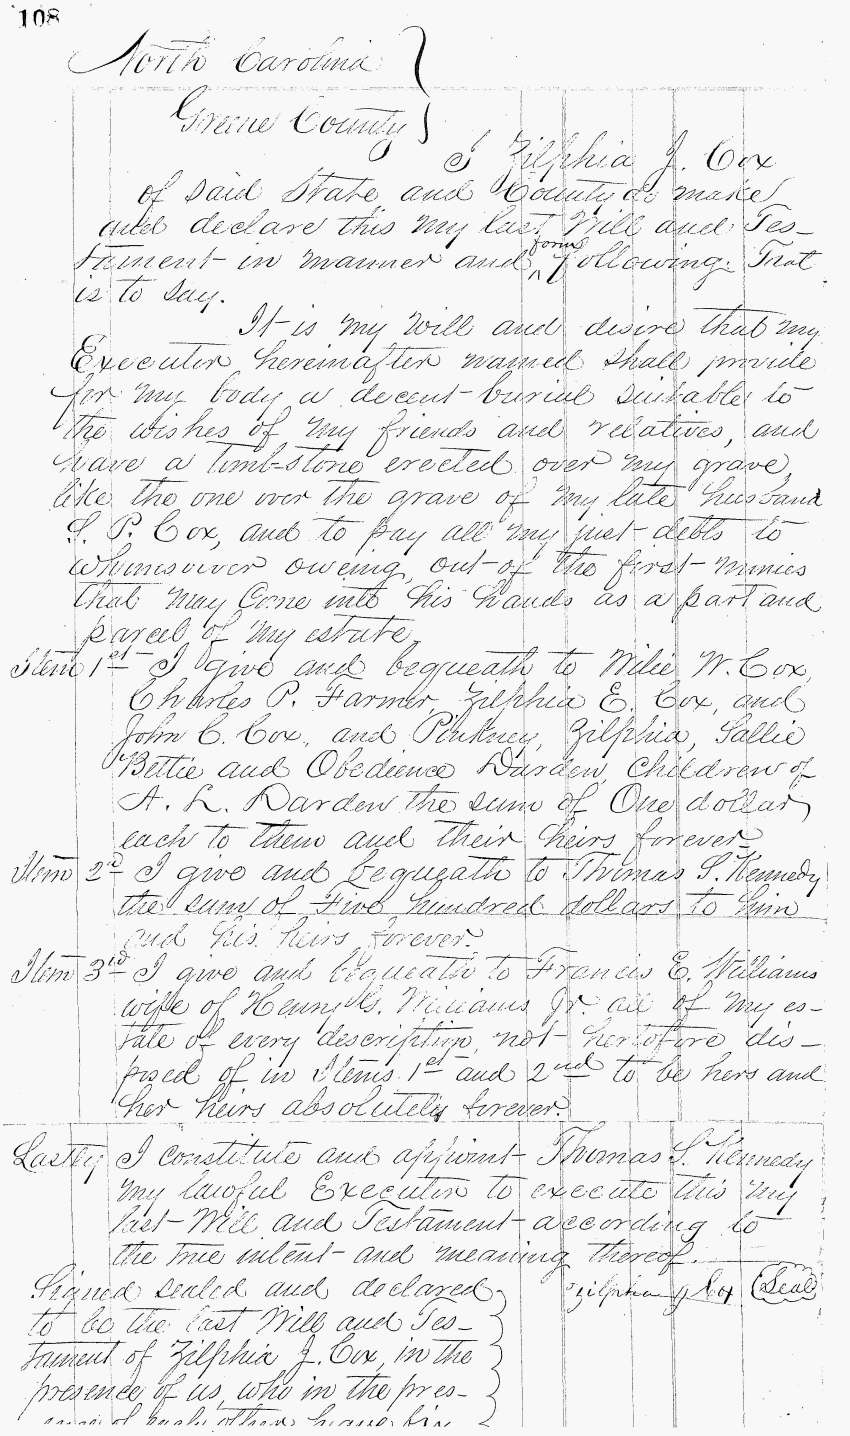 108
North Carolina
Greene County
I Zilphia J. Cox
of said State and County do make
and declare this my last Will and Tes-
tament in manner and form following. That
is to say.
It is my will and desire that my
Executor hereinafter named shall provide
for my body a decent burial suitable to
the wishes of my friends and relatives, and
have a tomb-stone erected over my grave,
like the one over the grave of my late husband
S. P. Cox, and to pay all my just debts to
whomsoever owing, out of the first monies
that may come into his hands as a part and
parcel of my estate.
Item 1st I give and bequeath to Wilie W. Cox,
Charles P. Farmer, Zilphia E. Cox, and
John C. Cox, and Pinkney, Zilphia, Sallie
Bettie and Obedience Darden, children of
A. L. Darden the sum of One dollar
each to them and their heirs forever.
Item 2nd I give and bequeath to Thomas S. Kennedy
the sum of Five hundred dollars to him
and his heirs forever.
Item 3rd I give and bequeath to Francis E. Williams
wife of Henry G. Williams Jr. all of my es-
tate of every description, not hertofore dis-
posed of in Items 1st and 2nd to be hers and
her heirs absolutely forever.
Lastly I constitute and appoint Thomas S. Kennedy
my lawful Executor to execute this my
last Will and Testament according to
the true intent and meaning thereof.
Signed sealed and declared Zilphia J Cox (Seal)
to be the last Will and Tes-
tament of Zilphia J. Cox, in the
presence of us, who in the pres-
ence of each other have